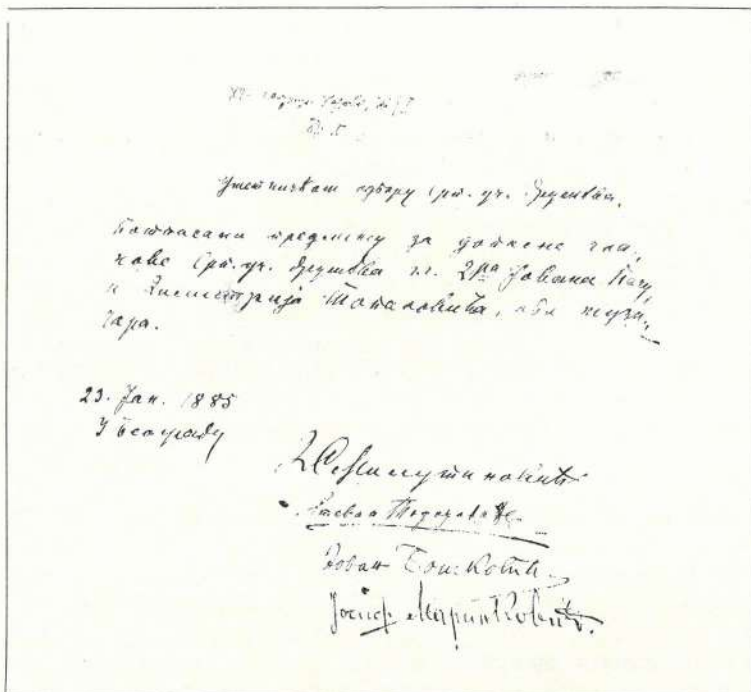 Уметничком одбору Срп. уч. Друштва.
Потписани предлажу за дописне чла-
нове Срп. уч. Друштва г.г. Дра Јована Пачу
и Димитрија Топаловића, оба музи-
чара.
23. Јан. 1885
У Београду
Д С Милутиновић
Стеван Тодоровић
Јован Бошковић
Јосиф Маринковић.